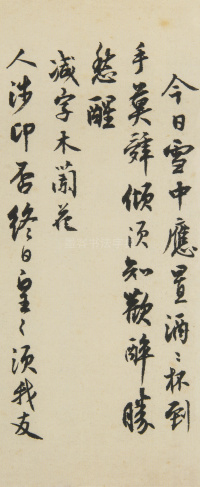 今日雪中應置酒〻杯到
手莫辭傾須知歡醉勝
愁醒
减字木蘭花
人涉卬否終日皇〻須我友